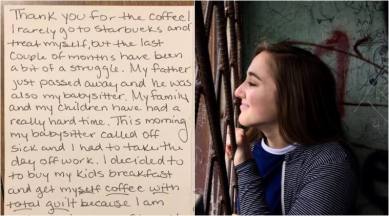 Thank you for the coffee!
I rarely go to Starbucks and
treat myself, but the last
couple of months have been
a bit of a struggle. My father
just passed away, and he was
also my babysitter. My family
and my children have had a
really hard time. This morning
my babysitter called off
sick and I had to take the
day off work. I decided to
to buy my kids breakfast
and get myself coffee with
total guilt because I am